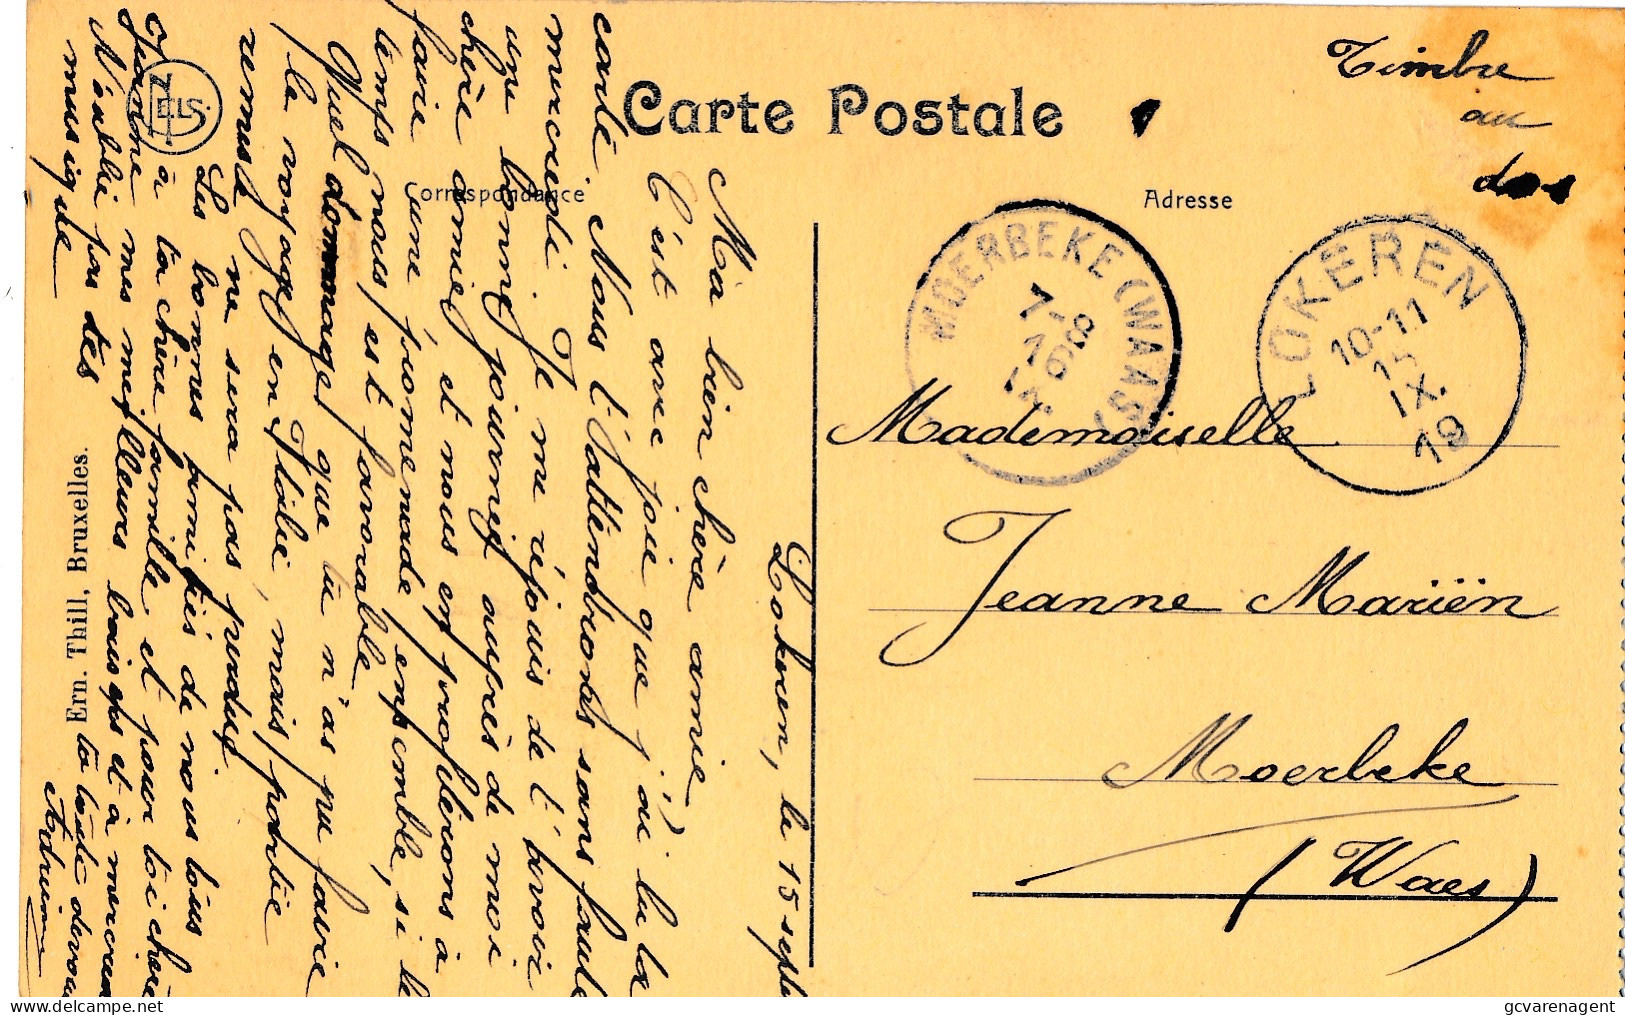 Carte Postale
Correspondance
Adresse
Timbre
au
dos
MOERBEKE (WAAS)
7-8
16
IX.
LOKEREN
10-11
15
IX.
19
Mademoiselle
Jeanne Mariën
Moerbeke
(Waes)
Lokeren, le 15 septe
Ma bien chère amie
C'est avec joie que j'ai lu ta
carte. Nous t'attendrons sans faute
mercredi. Je me réjouis de t'avoir
une bonne journée auprès de moi
chère amie, et nous en profiterons à
faire une promenade ensemble, si le
temps nous est favorable.
Quel dommage que tu n'as pu faire
le voyage en Italie, mais partie
remise ne sera pas perdue.
Les bonnes amitiés de nous tous
à ta chère famille et pour toi chère
Jeanne mes meilleurs baisers et à mercredi
N'oublie pas tes
musique
ta toute dévouée
ELS.
Ern. Thill, Bruxelles.
gcvarenagent